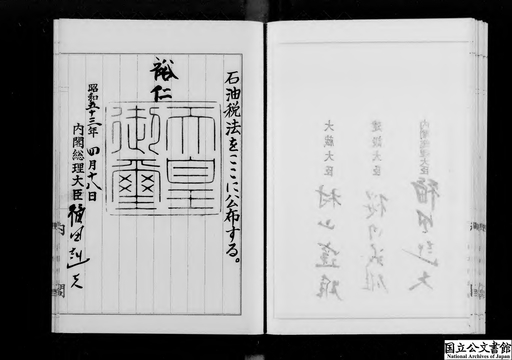 石油税法をここに公布する。
裕仁
天皇御璽
昭和五十三年四月十八日
内閣総理大臣 福田赳夫
国立公文書館
National Archives of Japan